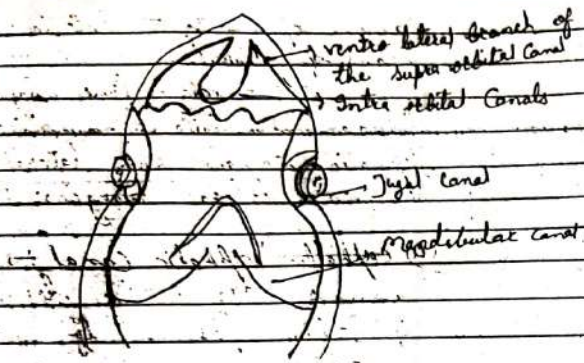 ventro lateral branch of
the supra orbital Canal
Intra orbital Canals
Jugal Canal
Mandibular canal